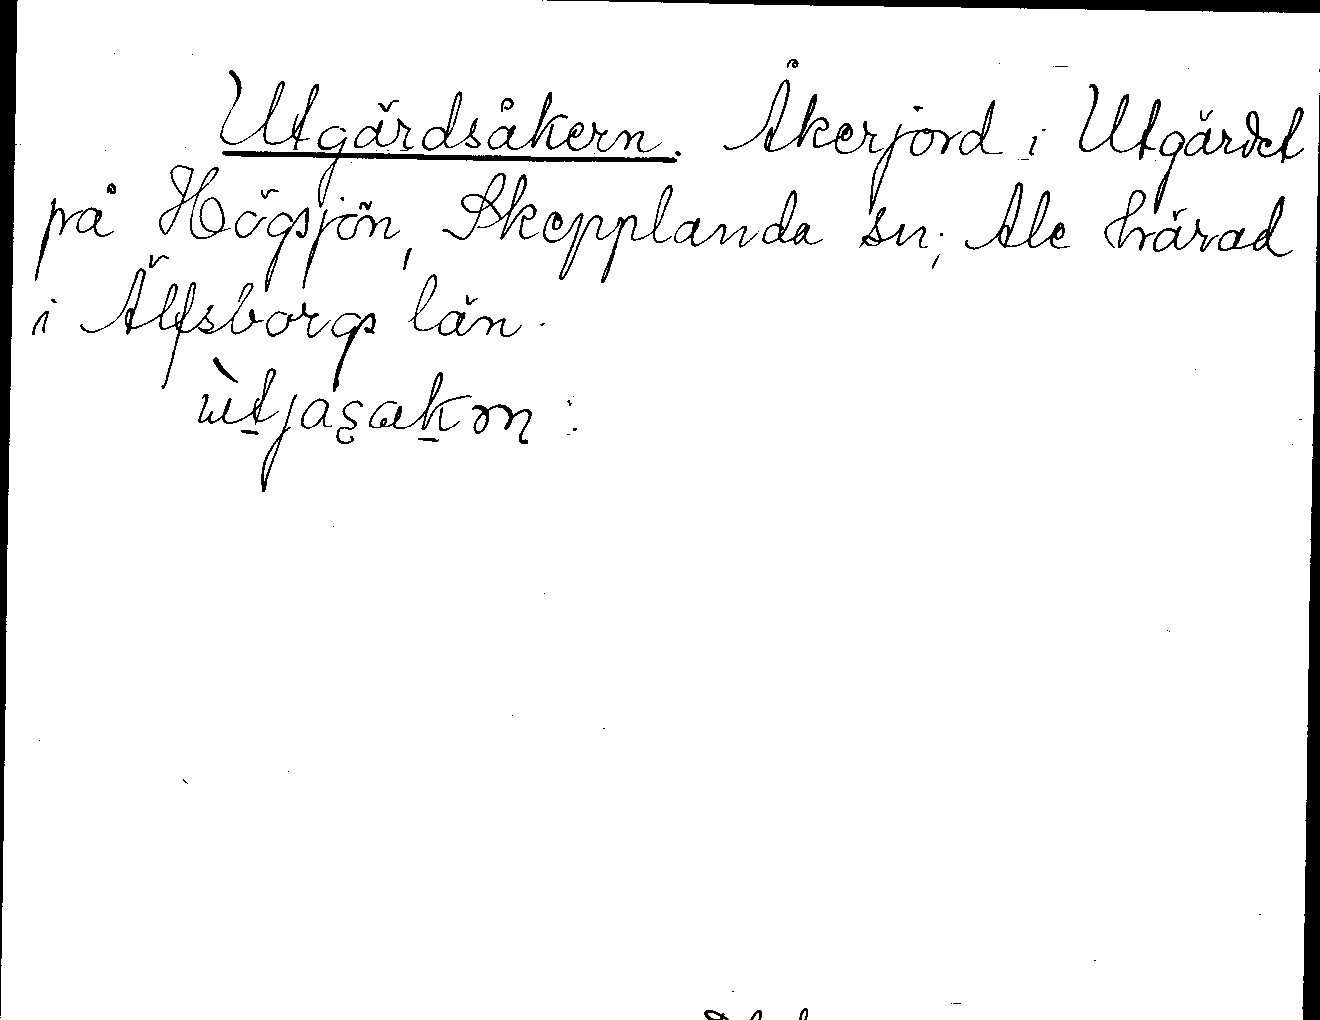 Utgärdsåkern. Åkerjord i Utgärdet
på Högsjön, Skepplanda sn; Ale härad
i Älfsborgs län.